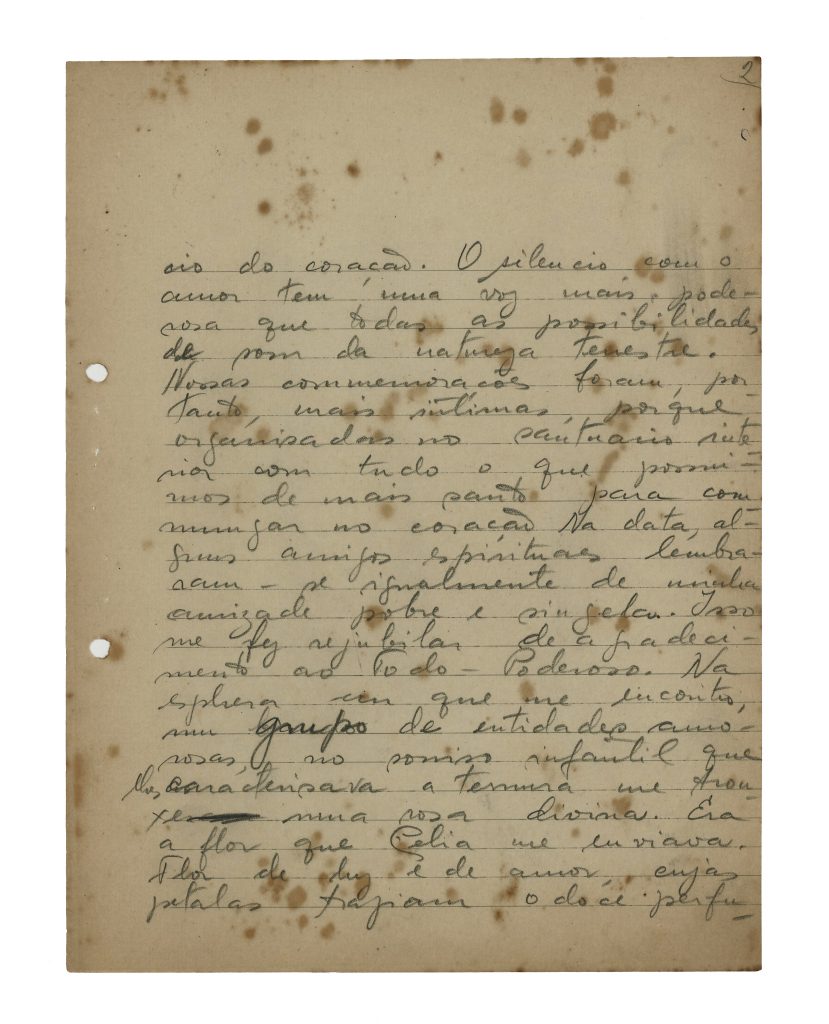 2
cio do coração. O silencio com o
amor tem uma voz mais pode-
rosa que todas as possibilidades
de som da natureza terrestre.
Nossas commemorações foram, por-
tanto, mais intimas, porque
organisadas no santuario inte
rior com tudo o que possui-
mos de mais santo para com
mungar no coração Na data, al-
guns amigos espirituaes lembra-
ram-se igualmente de minha
amizade pobre e singela. Isso
me fez rejubilar de agradeci-
mento ao Todo-Poderoso. Na
esphera em que me encontro,
um grupo de entidades amo-
rosas, no sorriso infantil que
lhes caracterisava a ternura me trou-
xe uma rosa divina. Era
a flor que Celia me enviava.
Flor de luz e de amor, cujas
petalas traziam o doce perfu-